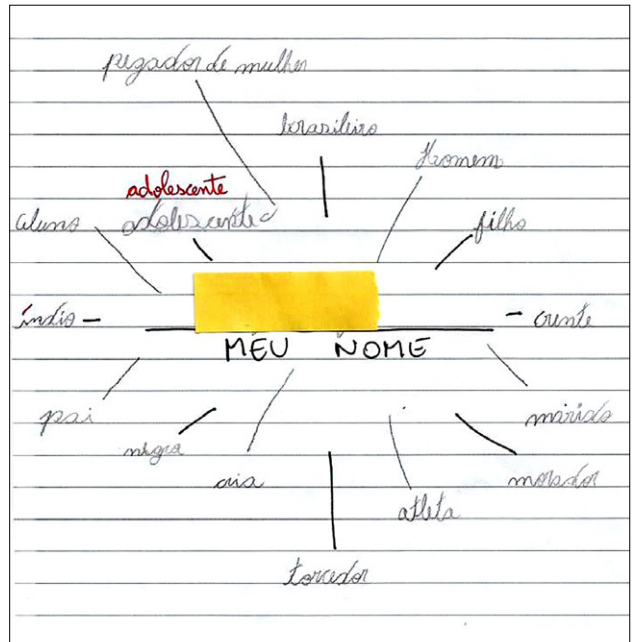 pegador de mulher
brasileiro
Homem
adolescente
adolescente
aluno
filho
índio
crente
MEU NOME
pai
marido
negra
cria
morador
atleta
torcedor